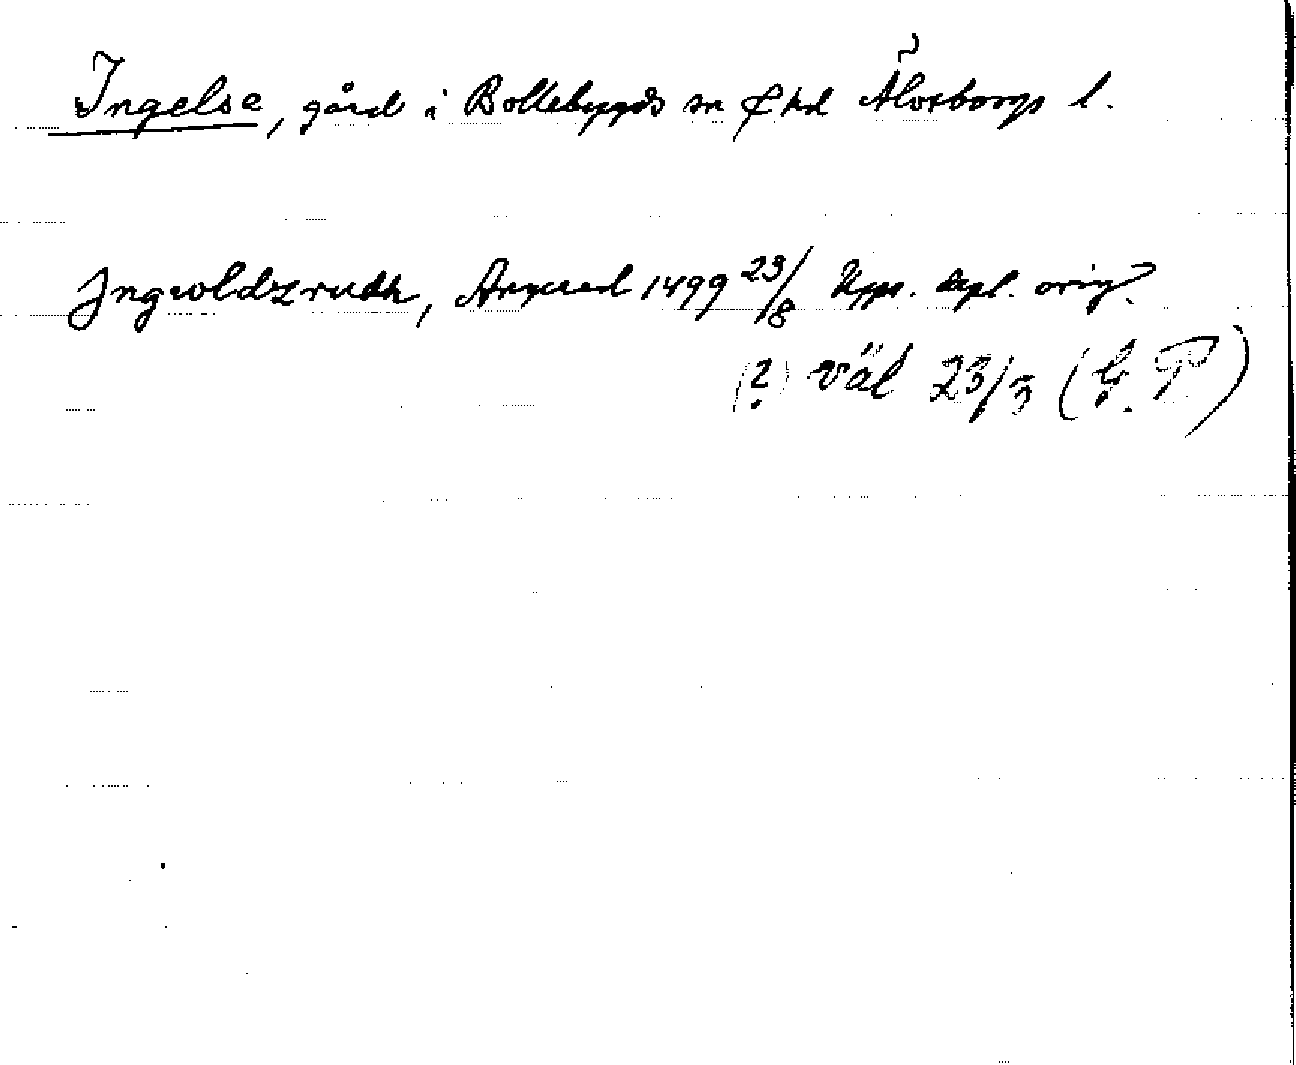 Ingelse, gård i Bollebygds sn & hd Älvsborgs l.
Jngwoldzrudh, 1499 23/8 Upps. depl. orig.
(?) väl 23/3 (G. P)